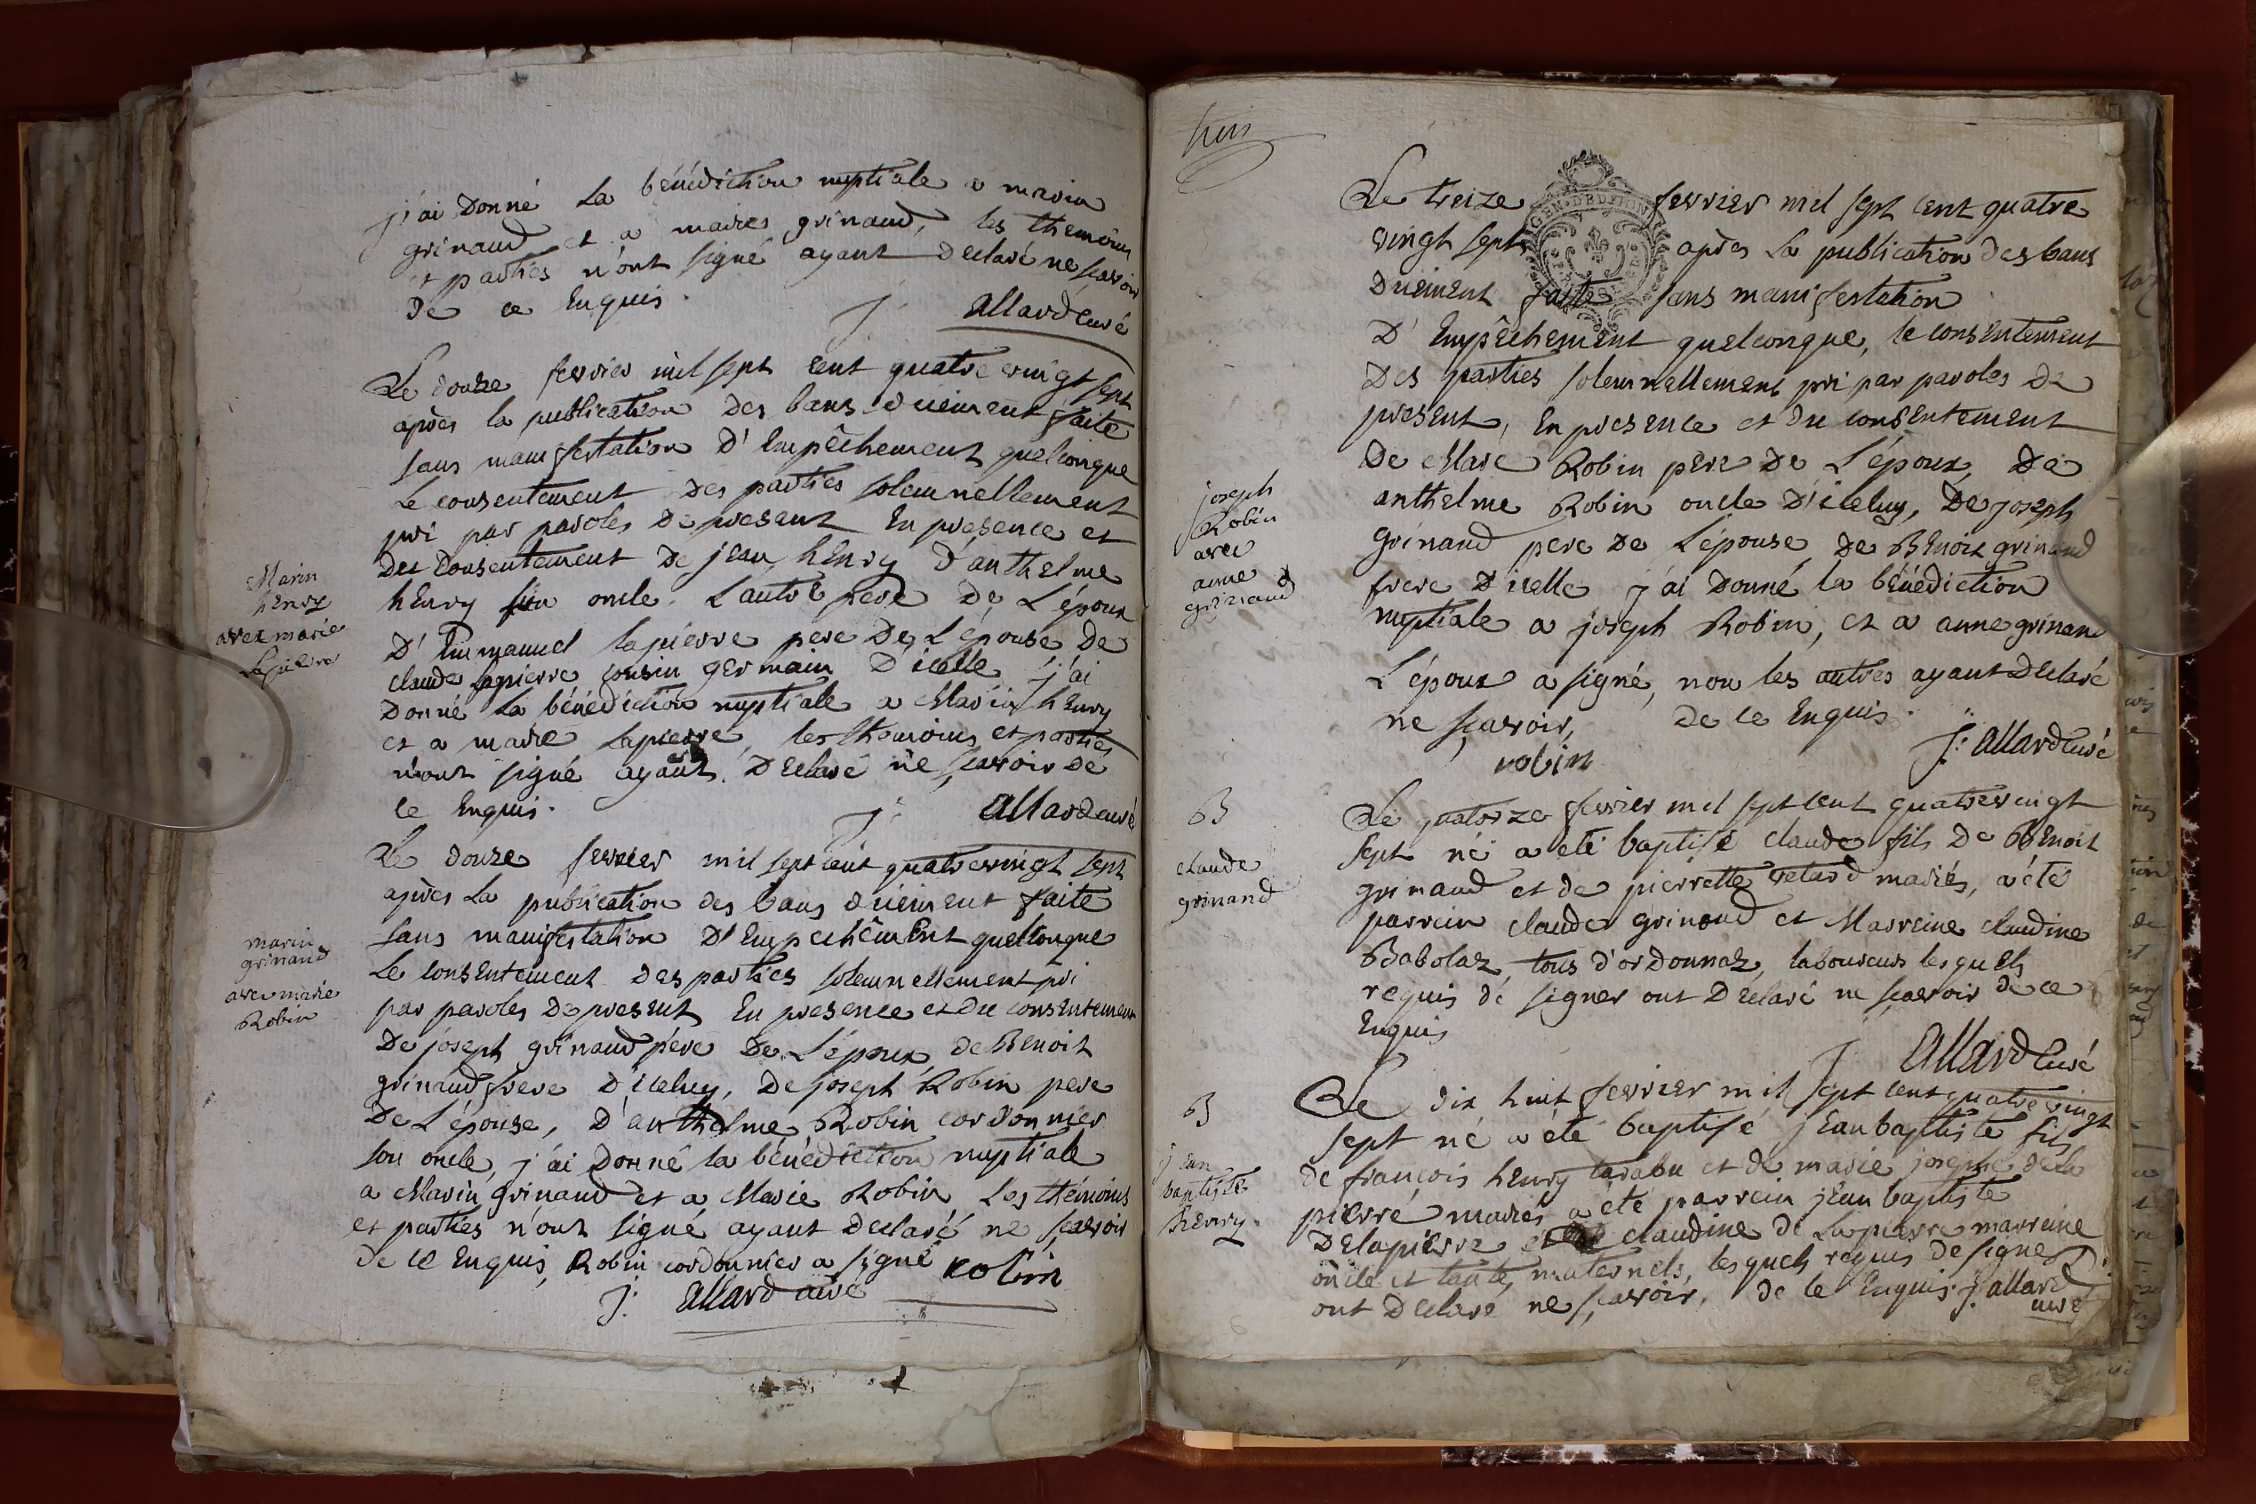 j'ai donné la bénédiction nuptiale a marin
grinaud et a maries grinaud, les themoins
et parties n'ont signé ayant declaré ne scavoir
de ce Enquis.
J: allard curé
Le douze fevrier mil sept cent quatre vingt sept
après la publication des bans düement faite
sans manifestation d'Empêchement quelconque
Le consentement des parties solemnellement
pri par paroles de present En presence et
du consentement de jean henry d'anthelme
henry oncle. L'autre pere de L'époux
D'Emmanuel lapierre pere de L'épouse de
claude lapierre cousin germain d'icelle j'ai
donné la bénédiction nuptiale a Marin henry
et a marie lapierre, les themoins et parties
n'ont signé ayant declaré ne scavoir de
ce Enquis.
J: allard curé
Marin
henry
avec marie
Lapierre
Le douze fevrier mil sept cent quatre vingt sept
après la publication des bans düement faite
sans manifestation D'Empechêment quelconque
Le consentement des parties solemnellement pri
par paroles de present En presence et du consentement
De joseph grinaud pére de L'époux, de Benoit
grinaud frere d'iceluy, de joseph Robin pere
De L'épouse, d'anthelme Robin cordonnier
son oncle, j'ai donné la bénédiction nuptiale
a Marin grinaud et a Marie Robin Les thémoins
et parties n'ont signé ayant declaré ne scavoir
de ce Enquis, Robin cordonnier a signé robin
J: allard curé
marin
grinaud
avec marie
Robin
Le treize fevrier mil sept cent quatre
vingt sept après la publication des bans
Duement faite sans manifestation
D'Empêchement quelconque, le consentement
Des parties solemnellement pri par paroles de
present, En presence et du consentement
De Marc Robin pere de L'époux, de
anthelme Robin oncle d'iceluy, de joseph
grinaud pere de L'épouse, de Benoit grinaud
frere d'icelle j'ai donné la bénédiction
nuptiale a joseph Robin, et a anne grinaud
L'époux a signé, non les autres ayant declaré
ne scavoir, de ce Enquis.
robin J: allard curé
joseph
Robin
avec
anne
grinaud
GEN. DE DIJON
Le quatorze fevrier mil sept cent quatre vingt
sept né a été baptisé claude fils de Benoit
grinaud et de pierrette vetard mariés, a été
parrein claude grinaud et Marreine claudine
Babolaz, tous d'ordonnaz, laboureurs lesquels
requis de signer ont declaré ne scavoir de ce
Enquis
J: allard curé
B
claude
grinand
Le dix huit fevrier mil sept cent quatre vingt
sept né a été baptisé jean baptiste fils
de françois henry tarabu et de marie josephe dela
pierre mariés a eté parrein jean baptiste
Delapierre et claudine de Lapierre marreine
oncle et tante, maternels, lesquels requis de signer
ont declaré ne scavoir, de ce Enquis. J: allard
curé
B
jean
baptiste
henry.